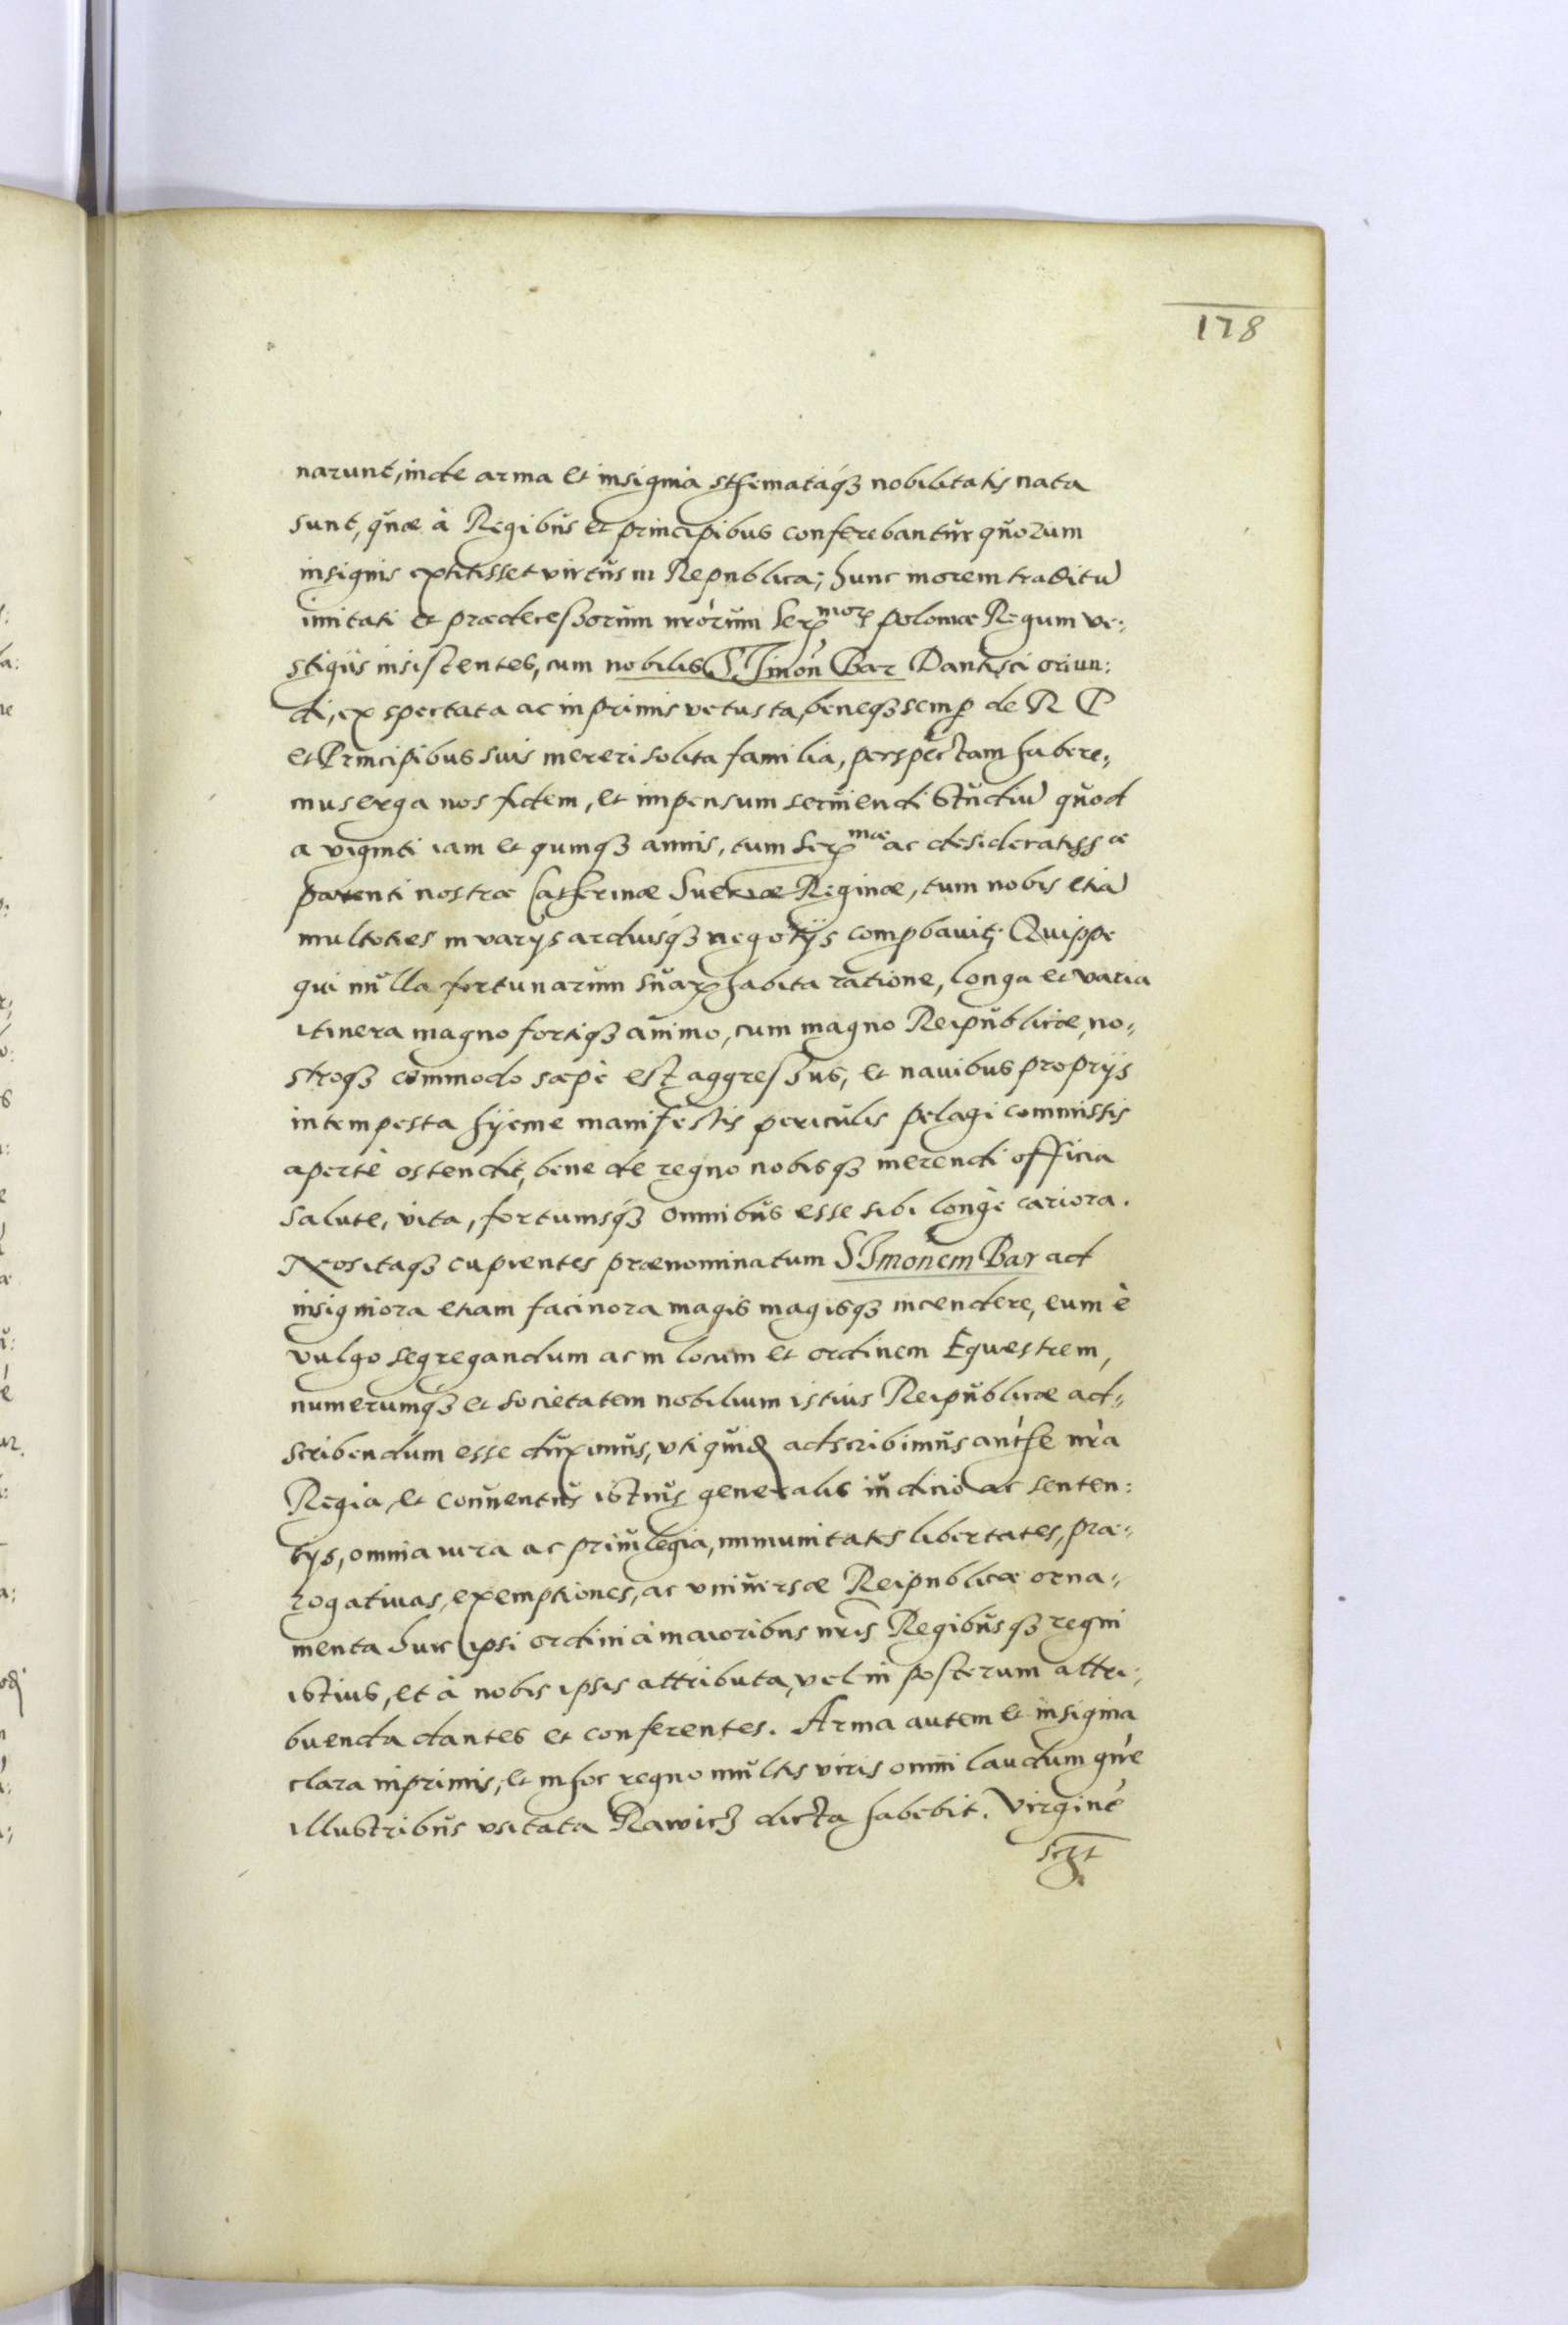 178
narunt, inde arma et insignia sthematáqꝫ nobilitatis nata
sunt, quæ à Regibus et principibus conferebantur quorum
insignis extitisset virtus in Republica; hunc morem traditũ
imitati et prædecessorum nr̃orum Ser^morꝫ Poloniæ Regum ve:
stigiis insistentes, cum nobilis Simon Bar Dantisci oriun:
di, ex spectata ac inprimis vetusta, beneqꝫ semꝑ de R P
et Principibus suis mereri solita familia, perspectam habere:
mus erga nos fidem, et impensum seruiendi Studiũ quod
a viginti iam et quinqꝫ annis, tum Ser^mæ ac desideratissæ
parenti nostræ Catherinæ Sueciæ Reginæ, tum nobis etiã
multoties in varijs arduisqꝫ negotijs comprobauit; Quippe
qui nulla fortunarum suarꝫ habita ratione, longa et varia
itinera magno fortiqꝫ animo, cum magno Reipublicæ, no:
stroqꝫ commodo sæpè est aggressus, et nauibus proprijs
intempesta hyeme manifestis periculis pelagi commissis
apertè ostendit, bene de regno nobisqꝫ merendi officia
salute, vita, fortunisqꝫ omnibus esse sibi longè cariora.
Nos itaqꝫ cupientes prænominatum Simonem Bar ad
insigniora etiam facinora magis magisqꝫ incendere, eum è
vulgo segregandum ac in locum et ordinem Equestrem,
numerumqꝫ et societatem nobilium istius Reipublicæ ad:
scribendum esse duximus, vti quidẽ adscribimus authẽ nr̃a
Regia, et conuentus istius generalis iudicio ac senten:
tijs, omnia iura ac priuilegia, immunitates libertates, præ:
rogatiuas, exemptiones, ac vniuersæ Reipublicæ orna:
menta huic ipsi ordini à maioribus nr̃is Regibusqꝫ regni
istius, et à nobis ipsis attributa, vel in posterum attri:
buenda dantes et conferentes. Arma autem et insignia
clara inprimis, et in hoc regno multis viris omni laudum gñre
illustribus vsitata Rawicz dicta habebit. Virginẽ